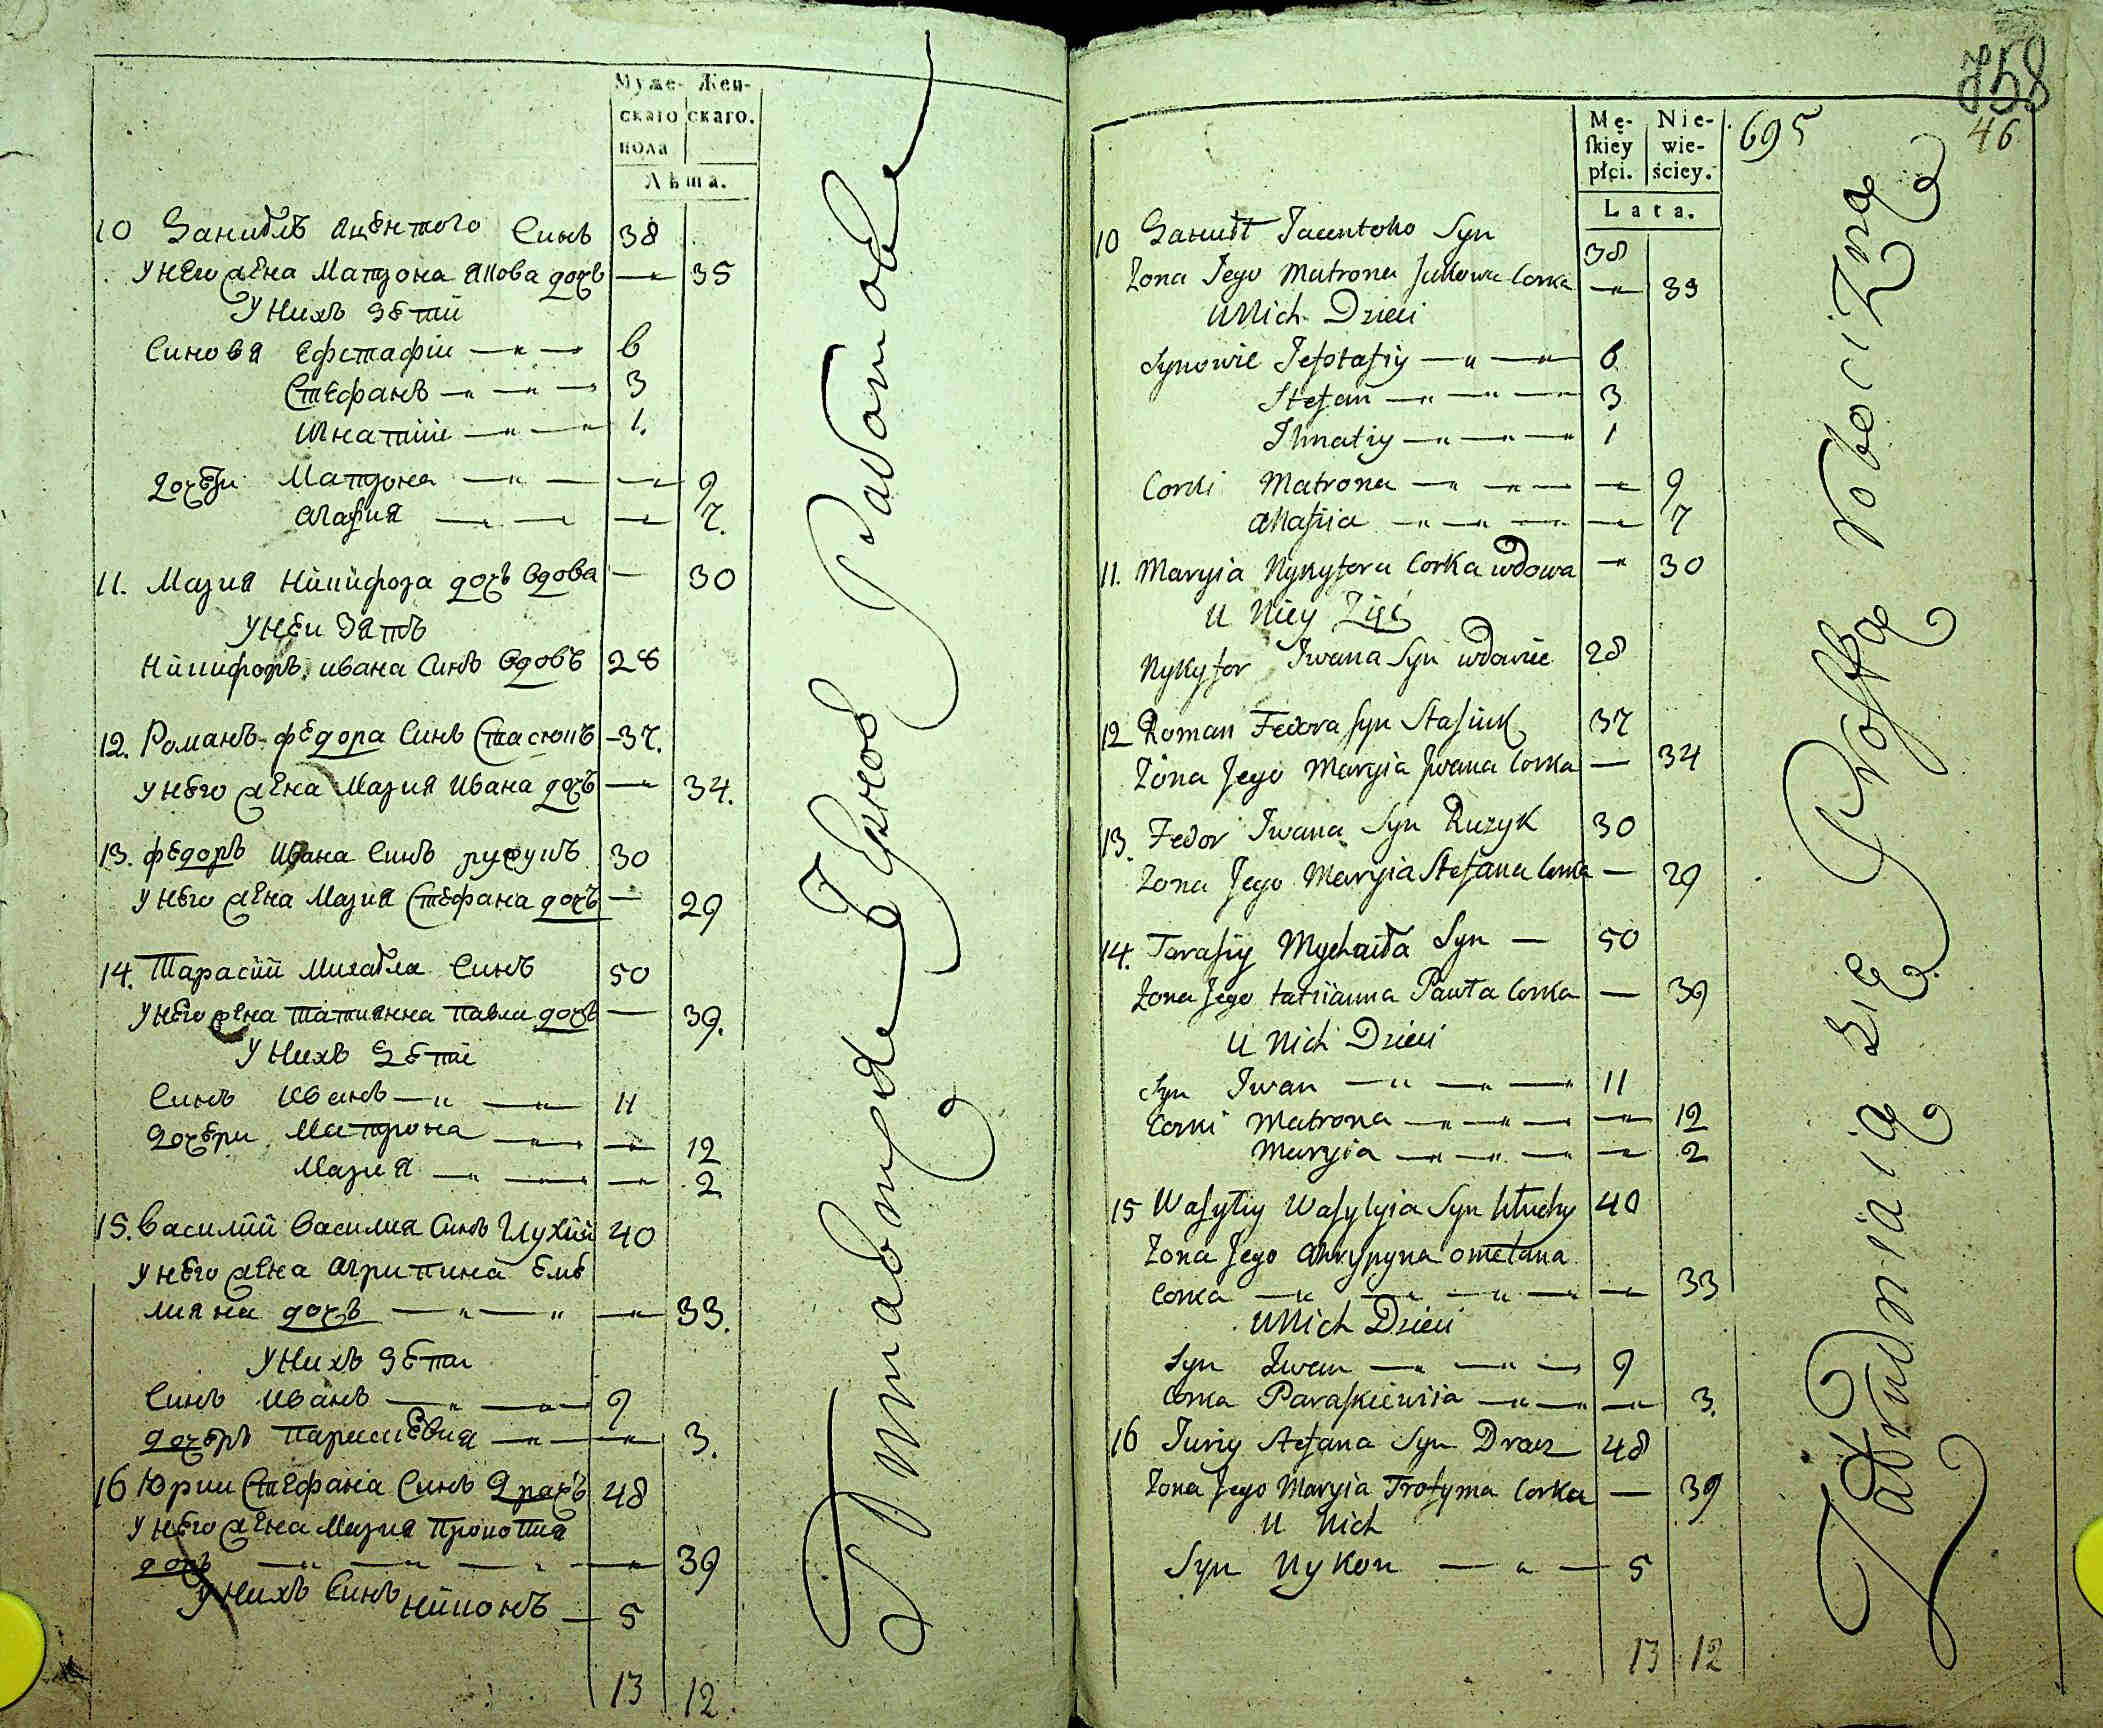 Муже- Жен-
скаго скаго.
пола
Лѣта.
10 Данило Яцентого Синъ 38
У него жена Матрона Якова дочь — 35
У нихъ дети
Синовя Ефстафiи — 6
Стефанъ — 3
Игнатiи — 1.
Дочери Матрона — 9
Агафия — 7.
11. Мария Никифора дочь вдова — 30
У неи зять
Никифоръ Ивана Синъ вдовъ 28
12. Романъ Федора Синъ Стасюкъ — 37.
У него жена Мария Ивана дочь — 34.
13. Федоръ Ивана Синъ 30
У него жена Мария Стефана дочь — 29
14. Тарасiй Михайла Синъ 50
У него жена Татиянна Павла дочь — 39.
У нихъ дети
Синъ Иванъ — 11
Дочери Матрона — 12
Мария — 2
15. Василiй Василия Синъ Глухий 40
У него жена Агрипина Еме
лияна дочь — 33.
У нихъ дети
Синъ Иванъ — 9
дочеръ Параскевия — 3.
16 Юрии Стефана Синъ Драчъ 48
У него жена Мария Прокопия
дочь — 39
У нихъ Синъ Никонъ — 5
13 12.
Тяглые
758
46
695
Mę- Nie-
ſkiey wie-
płci. ściey.
Lata.
10 Daniło Jacentoho Syn 38
Żona Jego Matrona Jakowa Corka — 35
U Nich Dzieci
Synowie Jefstafiy — 6
Stefan — 3
Ihnatiy — 1
Corki Matrona — 9
Ahafiia — 7
11. Maryia Nykyfora Corka wdowa — 30
U Niey Zięć
Nykyfor Iwana Syn wdowiec 28
12 Roman Fedora Syn Stasiuk 37
Żona Jego Maryia Iwana Corka — 34
13. Fedor Iwana Syn Ruzyk 30
Żona Jego Maryia Stefana Corka — 29
14. Tarasiy Mychaiła Syn — 50
Żona Jego Tatiianna Pawła Corka — 39
U Nich Dzieci
Syn Iwan — 11
Corki Matrona — 12
Maryia — 2
15 Wasyliy Wasylyia Syn Hłuchy 40
Żona Jego Ahrypyna Omelana
Corka — 33
U Nich Dzieci
Syn Iwan — 9
Corka Paraskiewiia — 3.
16 Juriy Stefana Syn Dracz 48
Żona Jego Maryia Trofyma Corka — 39
U Nich
Syn Nykon — 5
13 12
Zatrudniaią się Prostą robocizną